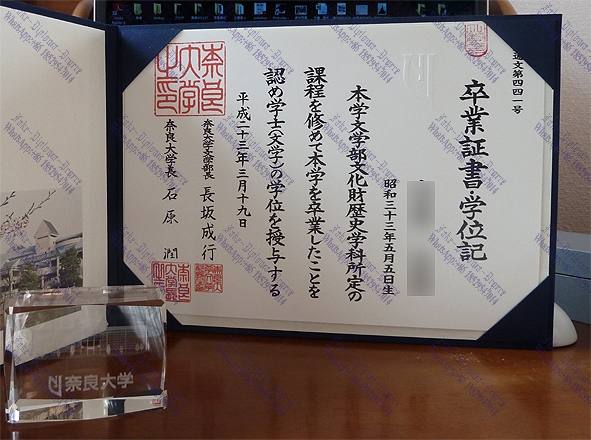 卒業証書・学位記
通文第四四一号
昭和三十三年五月五日生
本学文学部文化財歴史学科所定の
課程を修めて本学を卒業したことを
認め学士(文学)の学位を授与する
平成二十三年三月十九日
奈良大学文学部長 長坂成行
奈良大学長 石原 潤
奈良大学之印
奈良大学